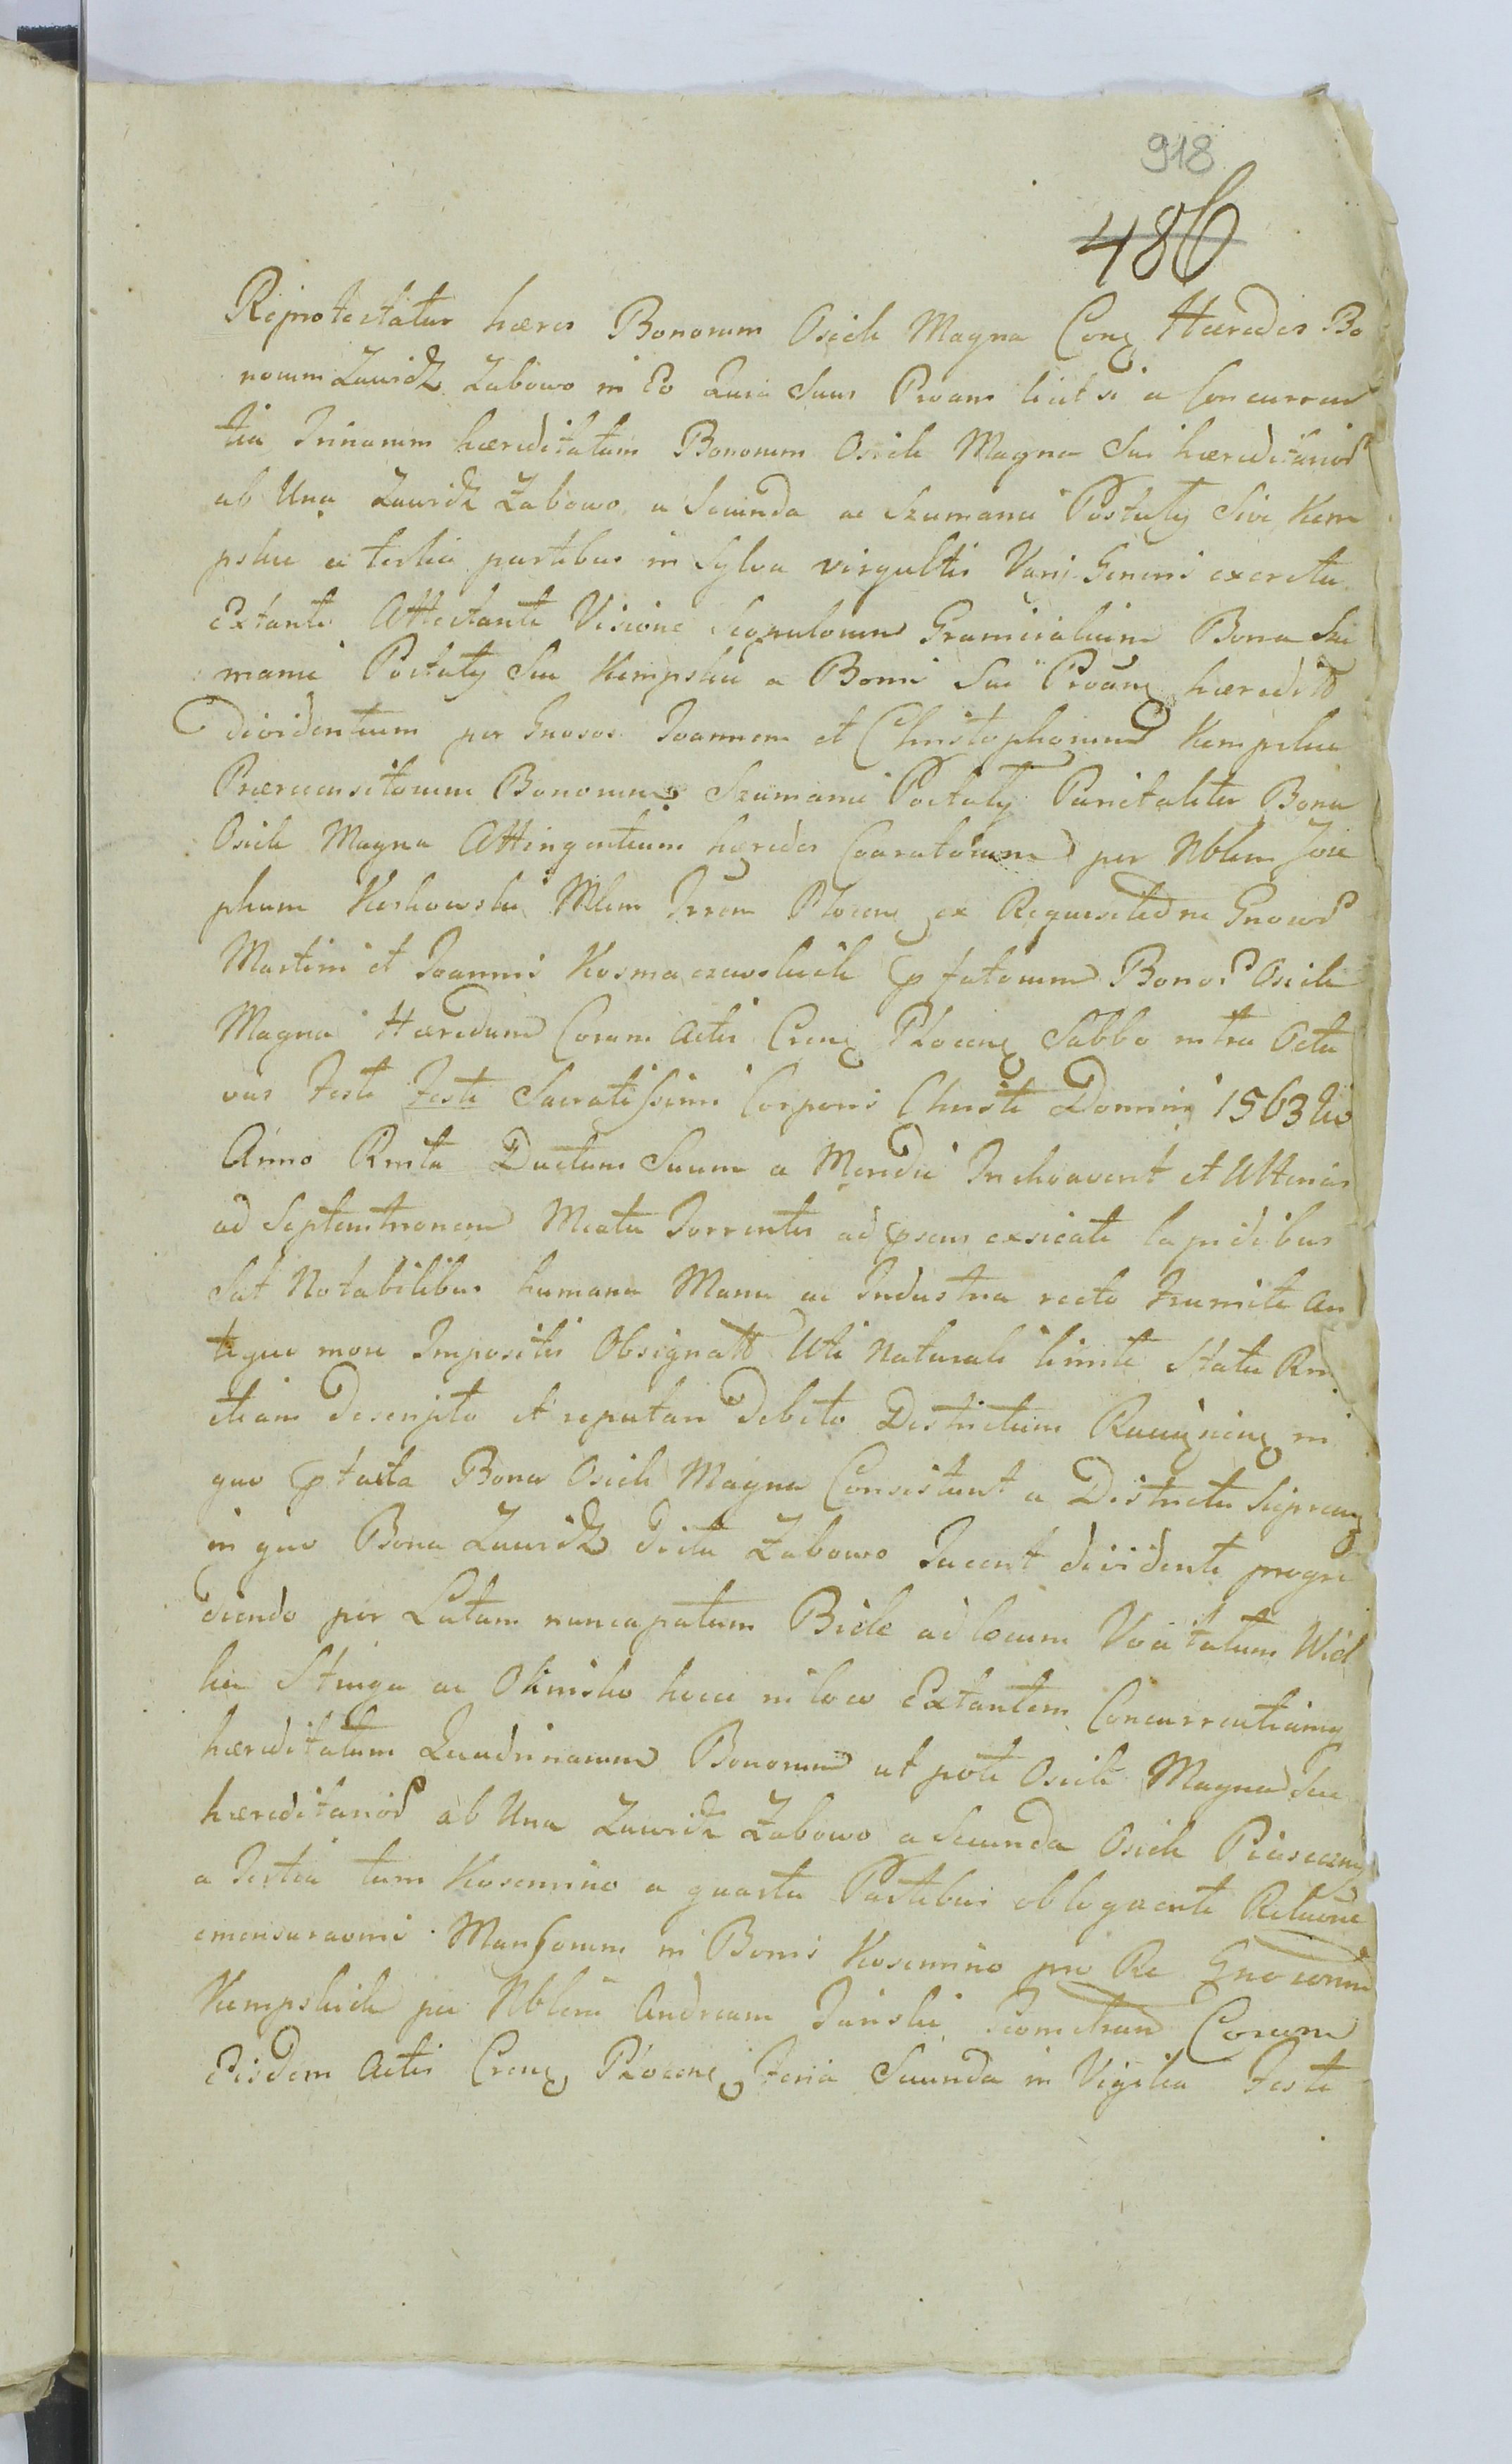 918
486
Reprotestatur hæres Bonorum Osiek Magna Conq Hæredes Bo
norum Zawidz Zabowo in Eo Quia Suus Proans licet si a Concurren
tia Trinarum hæreditatum Bonorum Osiek Magna Sui hæreditarior
ab Una Zawidz Zabowo a Secunda ac Szumanie Postuły Sive Kem
pskie a tertia partibus in Sylva virgultis Varij Generis excreta
Extante Attestante Visione Scopulorum Graniciali​um Bona Szu
manie Postuły Seu Kempskie a Bonis Sui Proanq hæredit
Dividentium per Gnosos Joannem et Christophorum Kempskie
Præreconsitorum Bonorum Szumanie Postuły Parietaliter Bona
Osiek Magna Attingentium hæredes Coaratorum per Nblem Jose
phum Kuskowski Mlem Trrem Plocen ex Requisitione Gnosor
Martini et Joannis Kosmaczewskich pfatorum Bonor Osiek
Magna Hæredum Coram Actis Crens Plocens Sabbo intra Octa
vas Festi Festi Sacratissimi Corporis Christi Domini 1563tio
Anno Rmta Ductum Suum a Meridie Inchoaverit et Ulterius
ad Septemtrionem Meatu Torrentis ad psens exsicati lapidibus
Sat Notabilibus humana Manu ac Industria recto tramite An
tiquo more Impositis Obsignatt Uti Naturali limite Statu Rm
etiam descripto et reputari debito Districtum Raciąnens in
quo ptacta Bona Osiek Magna Consistunt a Districtu Sieprcens
in quo Bona Zawidz dicta Zabowo Jacent dividente progre
diendo per Lutum nuncupatum Biele ad locum Vocitatum Wiel
ka Struga ac Okinisko hocce in loco Extantem Concurrentiamq
hæreditatum Quadrinarum Bonorum ut pote Osiek Magna Sui
hæreditarior ab Una Zawidz Zabowo a Secunda Osiek Piaseczny
a Tertia tum Kosemino a quarta Partibus obloquente Relaone
emensuraonis Mansorum in Bonis Kosemino pro Re Gnosorum
Kempskich per Nblem Andream Jański Geometram Coram
Eisdem Actis Crens Plocens Feria Secunda in Vigilia Festi